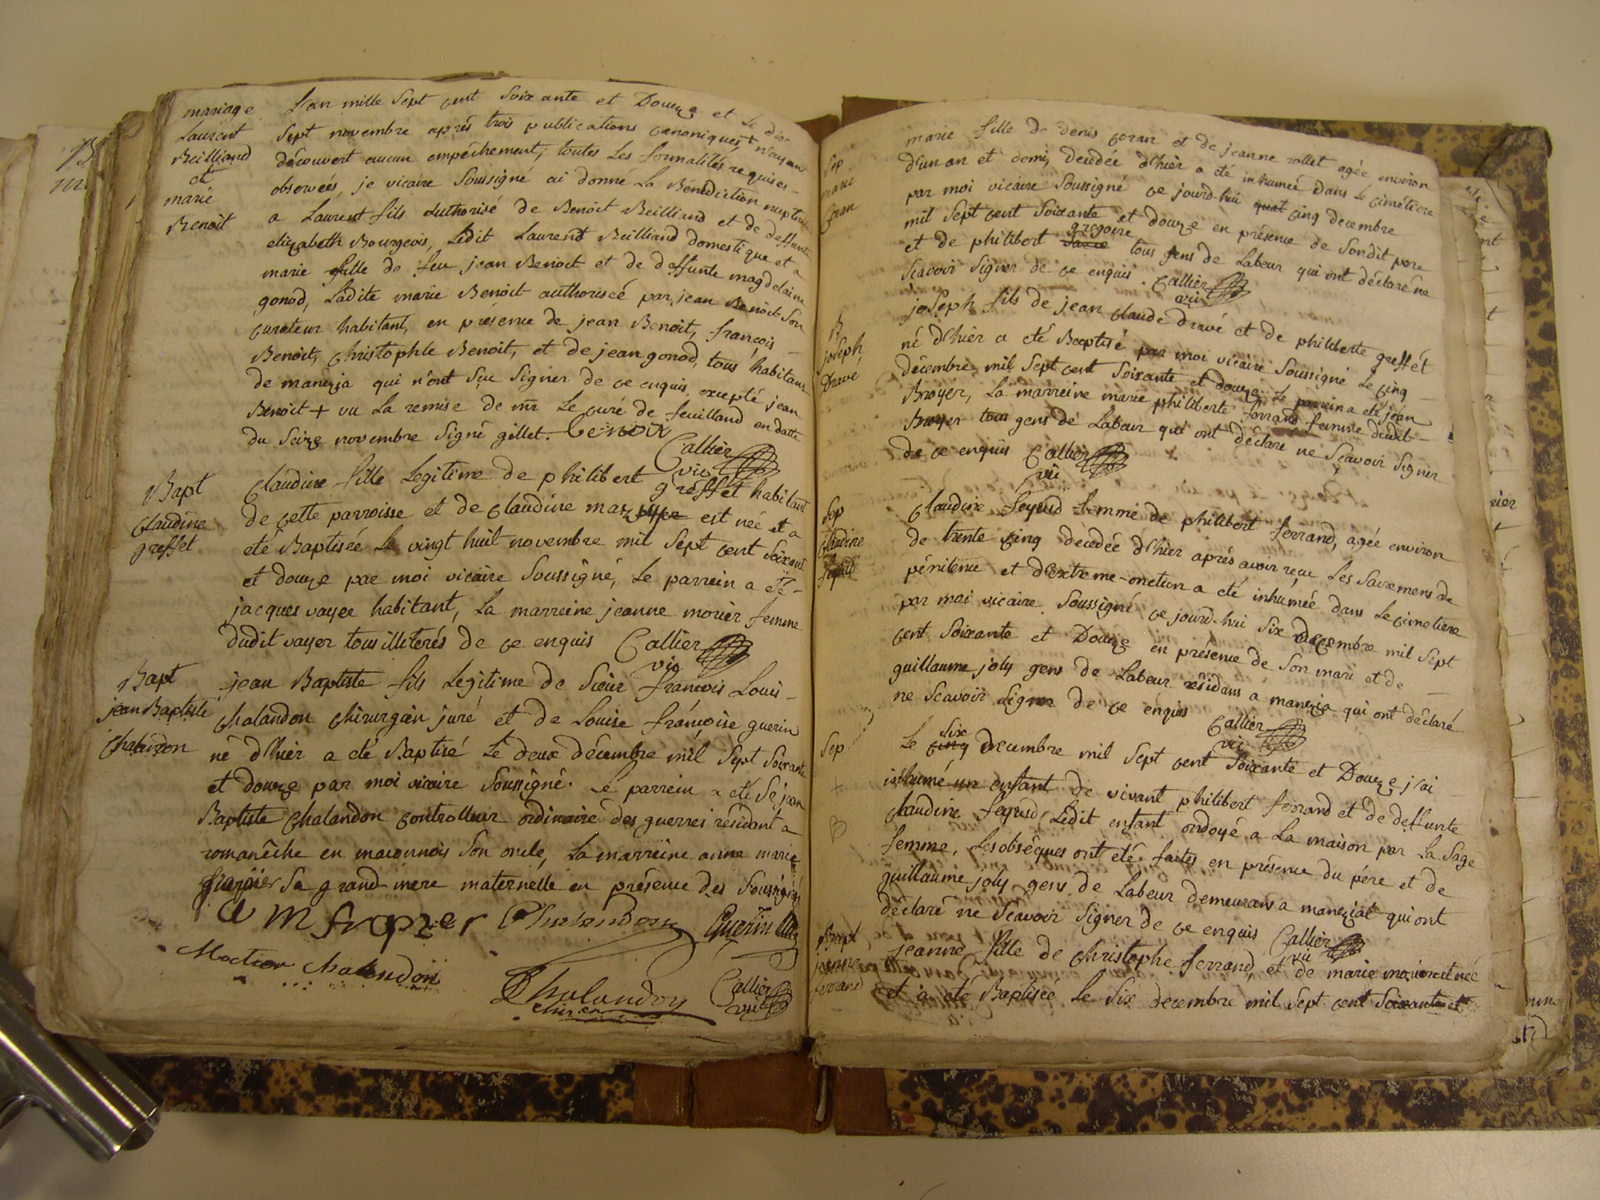 mariage
Laurent
Beilliand
et
marie
Benoit
Lan mille sept cent soixante et Douze et le dix
sept novembre après trois publications canoniques, n'ayant
découvert aucun empéchement, toutes Les formalités requises
observées, je vicaire soussigné ai donné La Bénédiction nuptiale
a Laurent fils authorisé de Benoit Beilliand et de deffunte
elizabeth Bourgeois, Ledit Laurent Beilliand domestique et a
marie fille de feu jean Benoit et de deffunte magdelaine
gonod, Ladite marie Benoit authorisée par jean Benoit son
curateur habitant, en presence de jean Benoit, françois
Benoit, christophle Benoit, et de jean gonod, tous habitans
de manezia qui n'ont sçu signer de ce enquis, excepté jean
Benoit + vu La remise de mr Le curé de feuilland en datte
du seize novembre signé gillet. Benoit
Callier
vic
Bapt
claudine
greffet
claudine fille Legitime de philibert greffet habitant
de cette parroisse et de claudine mazuyer est née et a
eté Baptisée Le vingt huit novembre mil sept cent soixante
et douze par moi vicaire soussigné, Le parrein a eté
jacques vayer habitant, La marreine jeanne morier femme
dudit vayer tous illiterés de ce enquis Callier
vic
Bapt
jean Baptiste
chalandon
jean Baptiste fils Legitime de sieur françois Louis
chalandon chirurgien juré et de Louise françoise guerin
né d'hier a eté Baptisé Le deux décembre mil sept soixante
et douze par moi vicaire soussigné. Le parrein a eté sr jean
Baptiste chalandon controlleur ordinaire des guerres résidant a
romanêche en maconnois son oncle, La marreine anne marie
frazier sa grand mere maternelle en présence des soussignés
a m frapier Chalandon Guerin
chalandon
Chalandon
chirurgien
Callier
vic
Sep
marie
coran
marie fille de denis coran et de jeanne rollet agée environ
d'un an et demi, decédée d'hier a eté inhumée dans le cimetiere
par moi vicaire soussigné ce jourd-hui quat cinq decembre
mil sept cent soixante et douze en présence de sondit pere
et de philibert gregoire tous gens de Labeur qui ont déclaré ne
sçavoir signer de ce enquis. Callier
vic
B
joseph
Dravé
joseph fils de jean claude dravé et de philiberte greffet
né d'hier a eté Baptisé par moi vicaire soussigné Le cinq
décembre mil sept cent soixante et douze. Le parrein a eté jean
Broyer, La marreine marie philiberte ferrand femme dudit
Broyer tous gens de Labeur qui ont déclaré ne sçavoir signer
de ce enquis Callier
vic
Sep
claudine
feyeud
claudine feyeud femme de philibert ferrand, agée environ
de trente cinq decédée d'hier après avoir reçu Les sacremens de
pénitence et d'Extreme-onction a eté inhumée dans Le cimetiere
par moi vicaire soussigné ce jourd-hui six decembre mil sept
cent soixante et Douze en présence de son mari et de
guillaume joly gens de Labeur résidans a manezia qui ont déclaré
ne sçavoir signer de ce enquis Callier
vic
Sep
Le cinq six decembre mil sept cent soixante et Douze j'ai
inhumé un enfant de vivant philibert ferrand et de deffunte
claudine feyeud, Ledit enfant ondoyé a La maison par La sage
femme. Les obséques ont eté faites en présence du pére et de
guillaume joly gens de Labeur demeurans a maneziat qui ont
déclaré ne sçavoir signer de ce enquis Callier
vic
B
Bapt
jeanne
ferrand
jeanne fille de christophe ferrand, et de marie est née
et a eté Baptisée Le six decembre mil sept cent soixante et